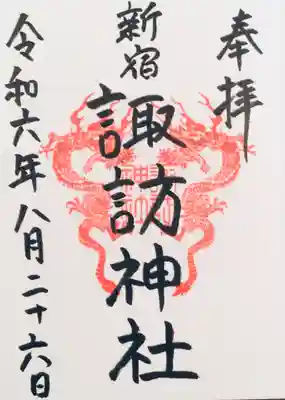 奉拝
新宿
諏訪神社
令和六年八月二十六日